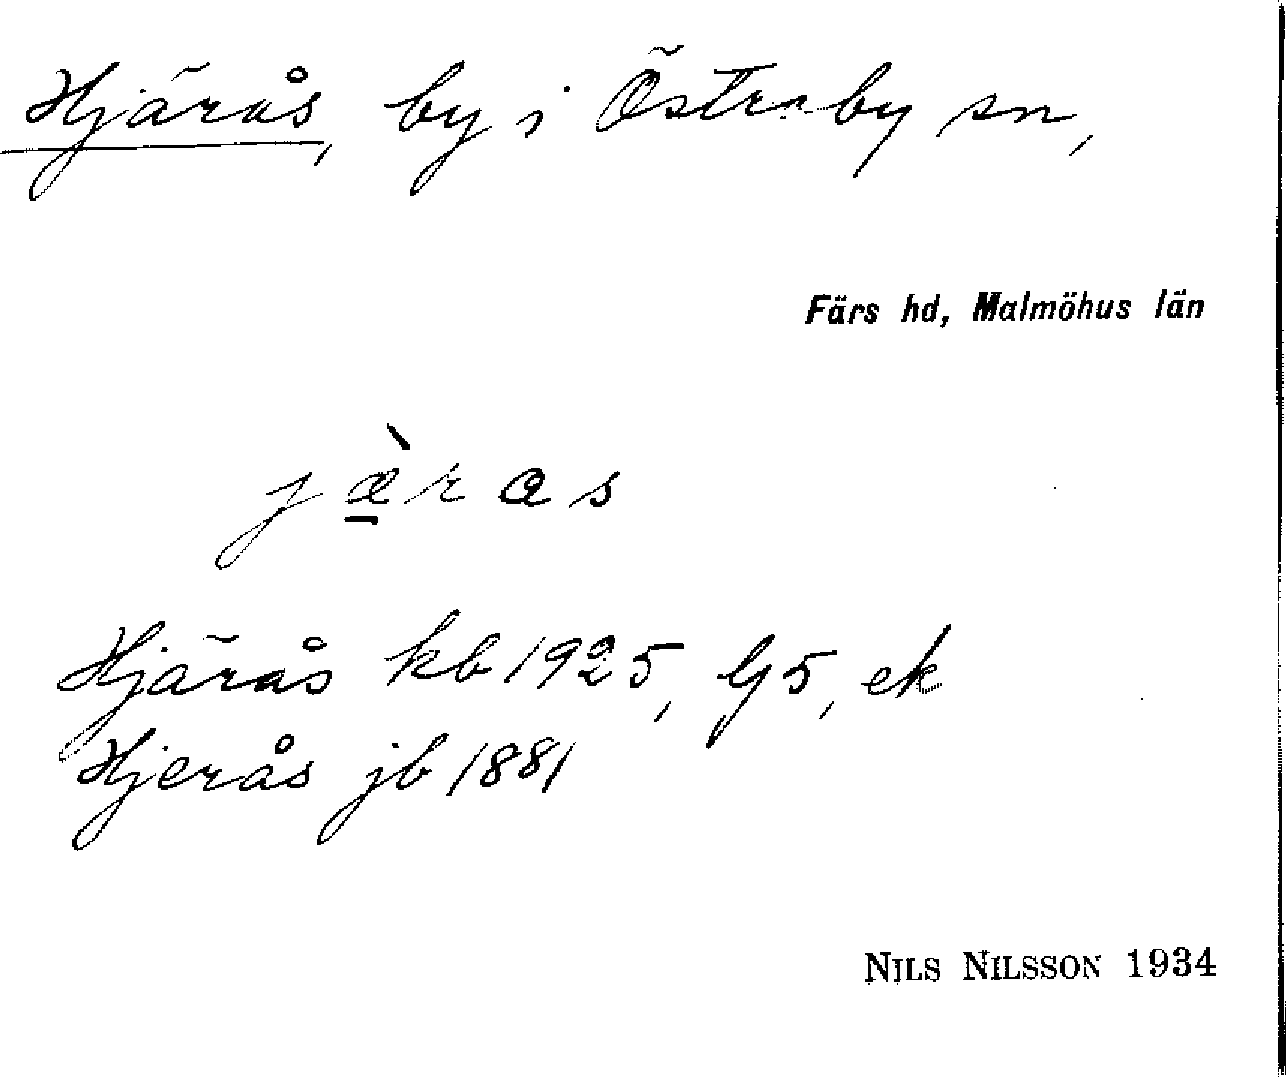 Hjärås, by i Östraby sn,
Färs hd, Malmöhus län
jæ̱̀ras
Hjärås kb 1925, G5, ek
Hjerås jb 1881
NILS NILSSON 1934